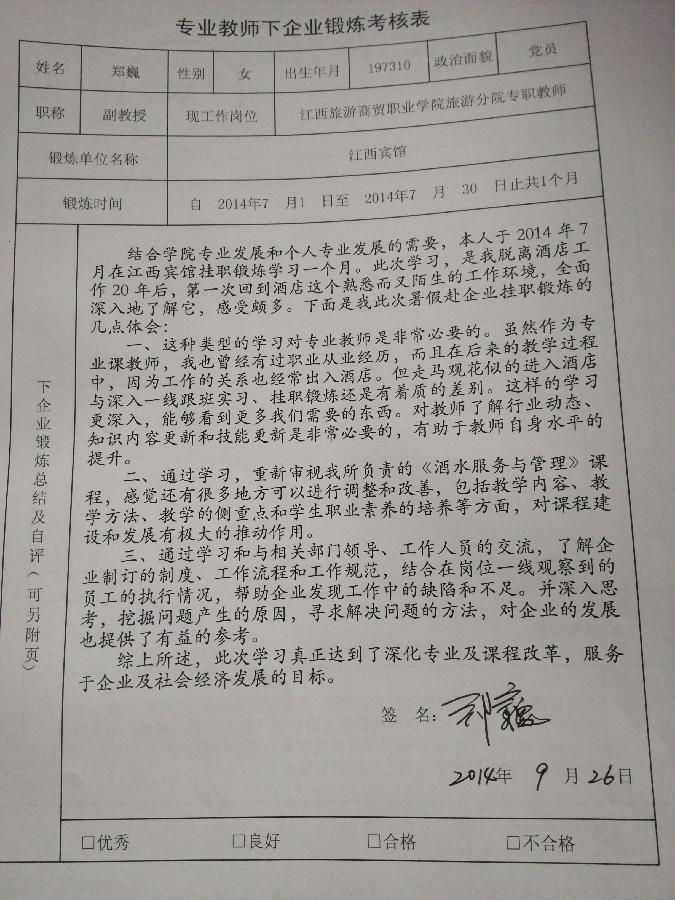 专业教师下企业锻炼考核表
姓名 郑巍 性别 女 出生年月 197310 政治面貌 党员
职称 副教授 现工作岗位 江西旅游商贸职业学院旅游分院专职教师
锻炼单位名称 江西宾馆
锻炼时间 自 2014年7 月1 日至 2014年7 月 30 日止共1个月
下企业锻炼总结及自评（可另附页）
结合学院专业发展和个人专业发展的需要，本人于 2014 年 7
月在江西宾馆挂职锻炼学习一个月。此次学习，是我脱离酒店工
作 20 年后，第一次回到酒店这个熟悉而又陌生的工作环境，全面
深入地了解它，感受颇多。下面是我此次暑假赴企业挂职锻炼的
几点体会：
一、这种类型的学习对专业教师是非常必要的。虽然作为专
业课教师，我也曾经有过职业从业经历，而且在后来的教学过程
中，因为工作的关系也经常出入酒店。但走马观花似的进入酒店
与深入一线跟班实习、挂职锻炼还是有着质的差别。这样的学习
更深入，能够看到更多我们需要的东西。对教师了解行业动态、
知识内容更新和技能更新是非常必要的，有助于教师自身水平的
提升。
二、通过学习，重新审视我所负责的《酒水服务与管理》课
程，感觉还有很多地方可以进行调整和改善，包括教学内容、教
学方法、教学的侧重点和学生职业素养的培养等方面，对课程建
设和发展有极大的推动作用。
三、通过学习和与相关部门领导、工作人员的交流，了解企
业制订的制度、工作流程和工作规范，结合在岗位一线观察到的
员工的执行情况，帮助企业发现工作中的缺陷和不足。并深入思
考，挖掘问题产生的原因，寻求解决问题的方法，对企业的发展
也提供了有益的参考。
综上所述，此次学习真正达到了深化专业及课程改革，服务
于企业及社会经济发展的目标。
签 名：郑巍
2014年 9 月 26日
□优秀 □良好 □合格 □不合格